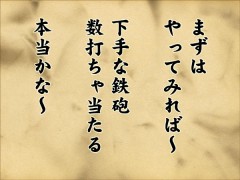 まずは
やってみれば～
下手な鉄砲
数打ちゃ当たる
本当かな～